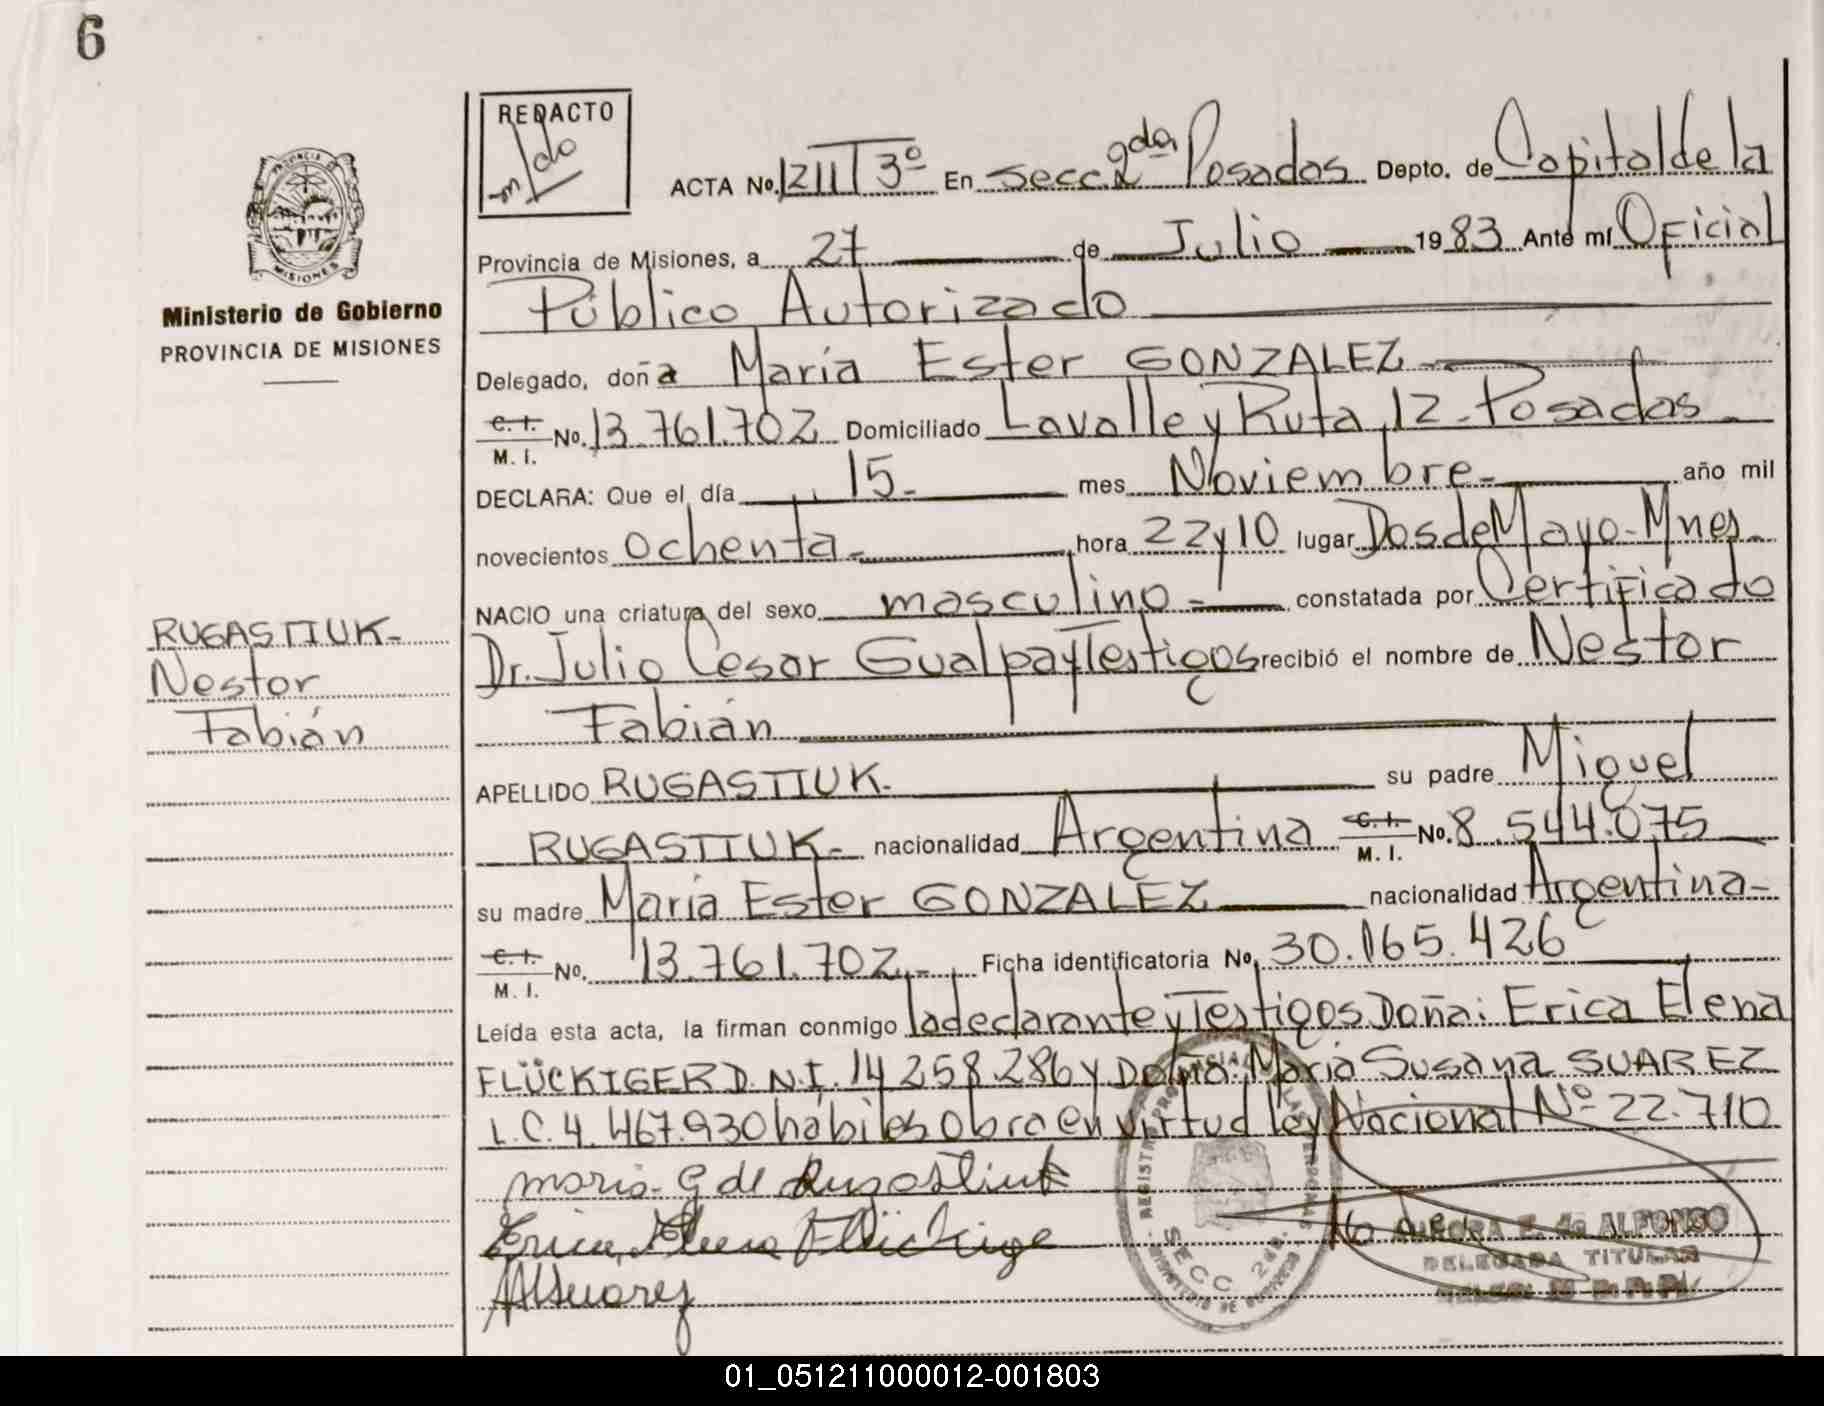 6
REDACTO
PROVINCIA DE
MISIONES
Ministerio de Gobierno
PROVINCIA DE MISIONES
ACTA No. 1211 T 3º En Secc. 2da Posadas Depto. de Capital de la
Provincia de Misiones, a 27 de Julio 1983 Ante mí Oficial
Público Autorizado
Delegado, doña María Ester GONZALEZ
C. I. M. I. No. 13.761.702 Domiciliado Lavalle y Ruta 12-Posadas
DECLARA: Que el día 15- mes Noviembre- año mil
novecientos ochenta- hora 22 y 10 lugar Dos de Mayo-Mnes-
NACIO una criatura del sexo masculino- constatada por Certificado
Dr. Julio Cesar Gualpa y Testigos recibió el nombre de Nestor
Fabián
RUGASTIUK-
Nestor
Fabián
APELLIDO RUGASTIUK- su padre Miguel
RUGASTIUK- nacionalidad Argentina C. I. M. I. No. 8.544.075
su madre María Ester GONZALEZ nacionalidad Argentina-
C. I. M. I. No. 13.761.702- Ficha identificatoria No. 30.165.426
Leída esta acta, la firman conmigo la declarante y Testigos Doña: Erica Elena
FLÜCKIGER D.N.I. 14.258.286 y Doña: María Susana SUAREZ
L.C. 4.467.930 hábiles Obra en virtud ley Nacional Nº 22.710
maria G de Rugastiuk
Erica Elena Flückiger
MSuarez
SECC 2da.
AURORA E. de ALFONSO
DELEGADA TITULAR
01_051211000012-001803